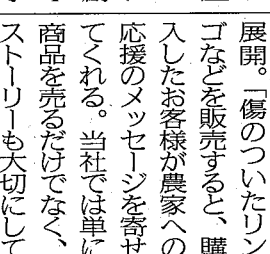 展開。「傷のついたリン
ゴなどを販売すると、購
入したお客様が農家への
応援のメッセージを寄せ
てくれる。当社では単に
商品を売るだけでなく、
ストーリーも大切にして